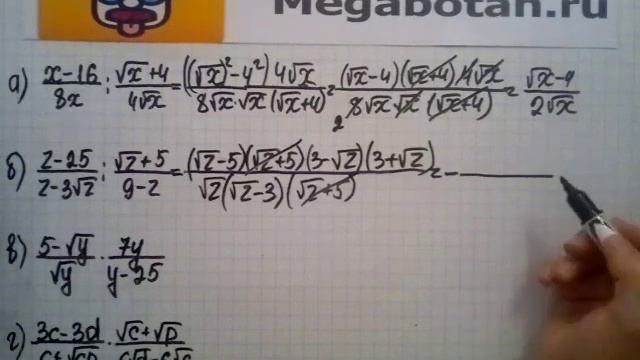 Megabotan.ru
а) x-16/8x : √x+4/4√x = ((√x)²-4²)4√x/8√x·√x(√x+4) = (√x-4)(√x+4)4√x/8√x√x(√x+4) 2 = √x-4/2√x
б) z-25/z-3√z : √z+5/9-z = (√z-5)(√z+5)(3-√z)(3+√z)/√z(√z-3)(√z+5) = -
в) 5-√y/√y · 7y/y-25
г) 3c-3d/ · √c+√D/